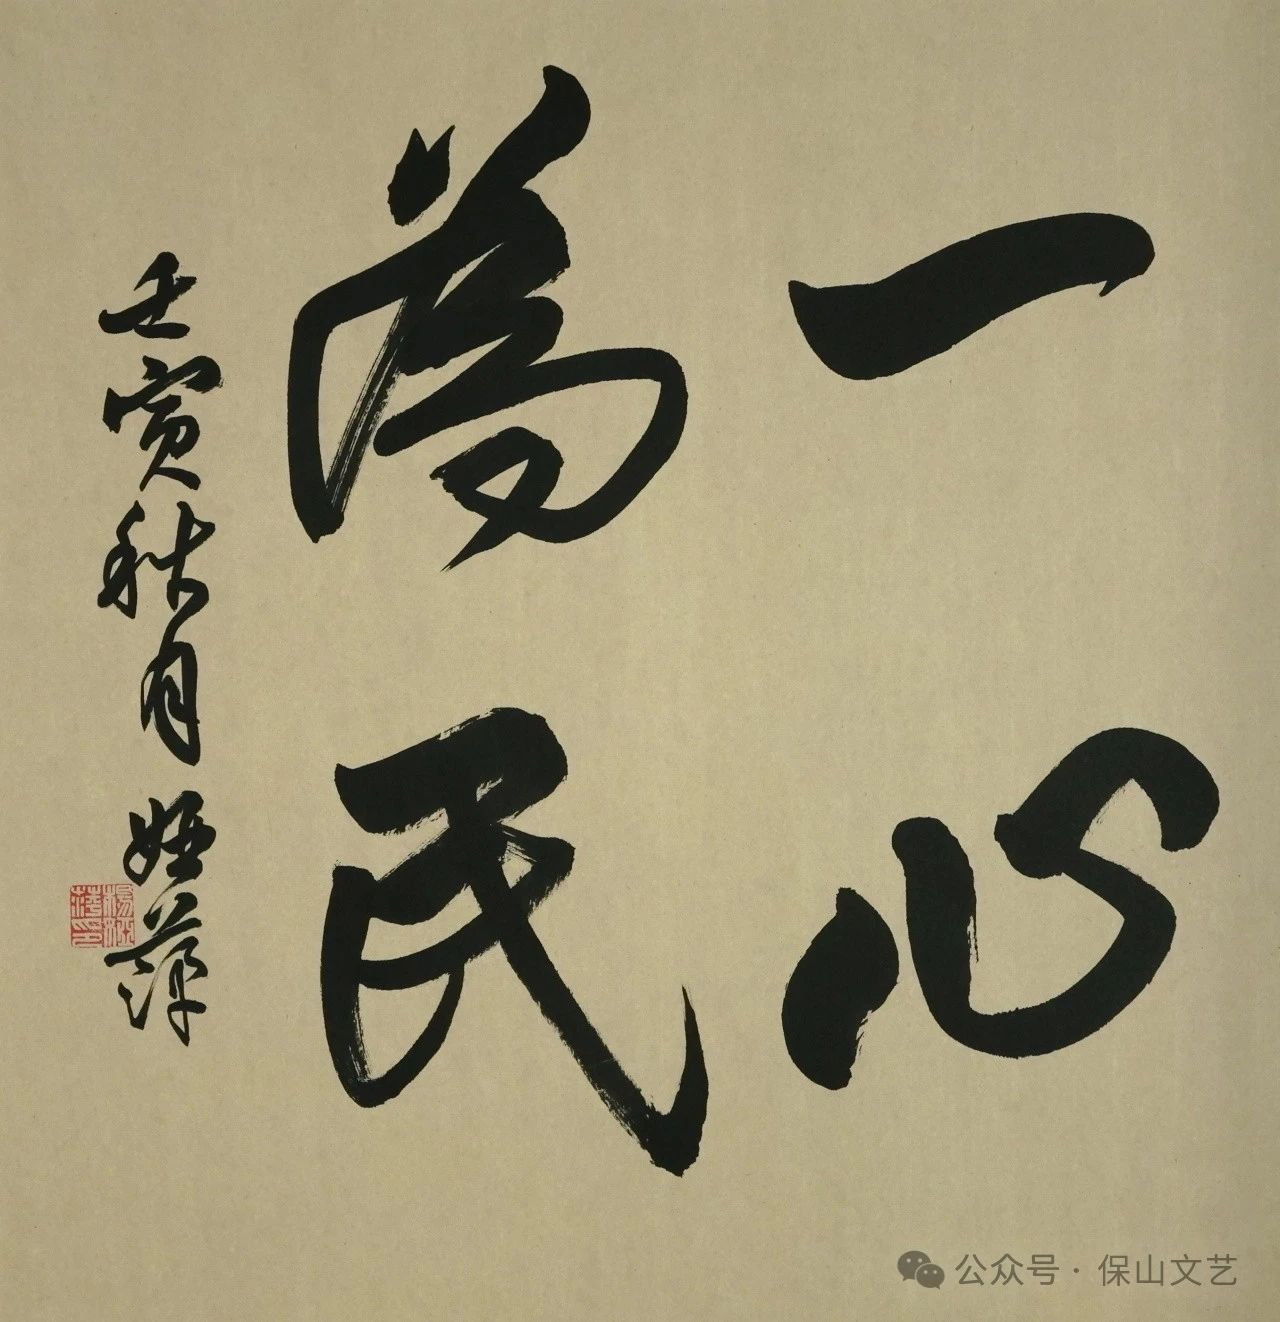 一心
為民
壬寅秋月 萍
公众号·保山文艺